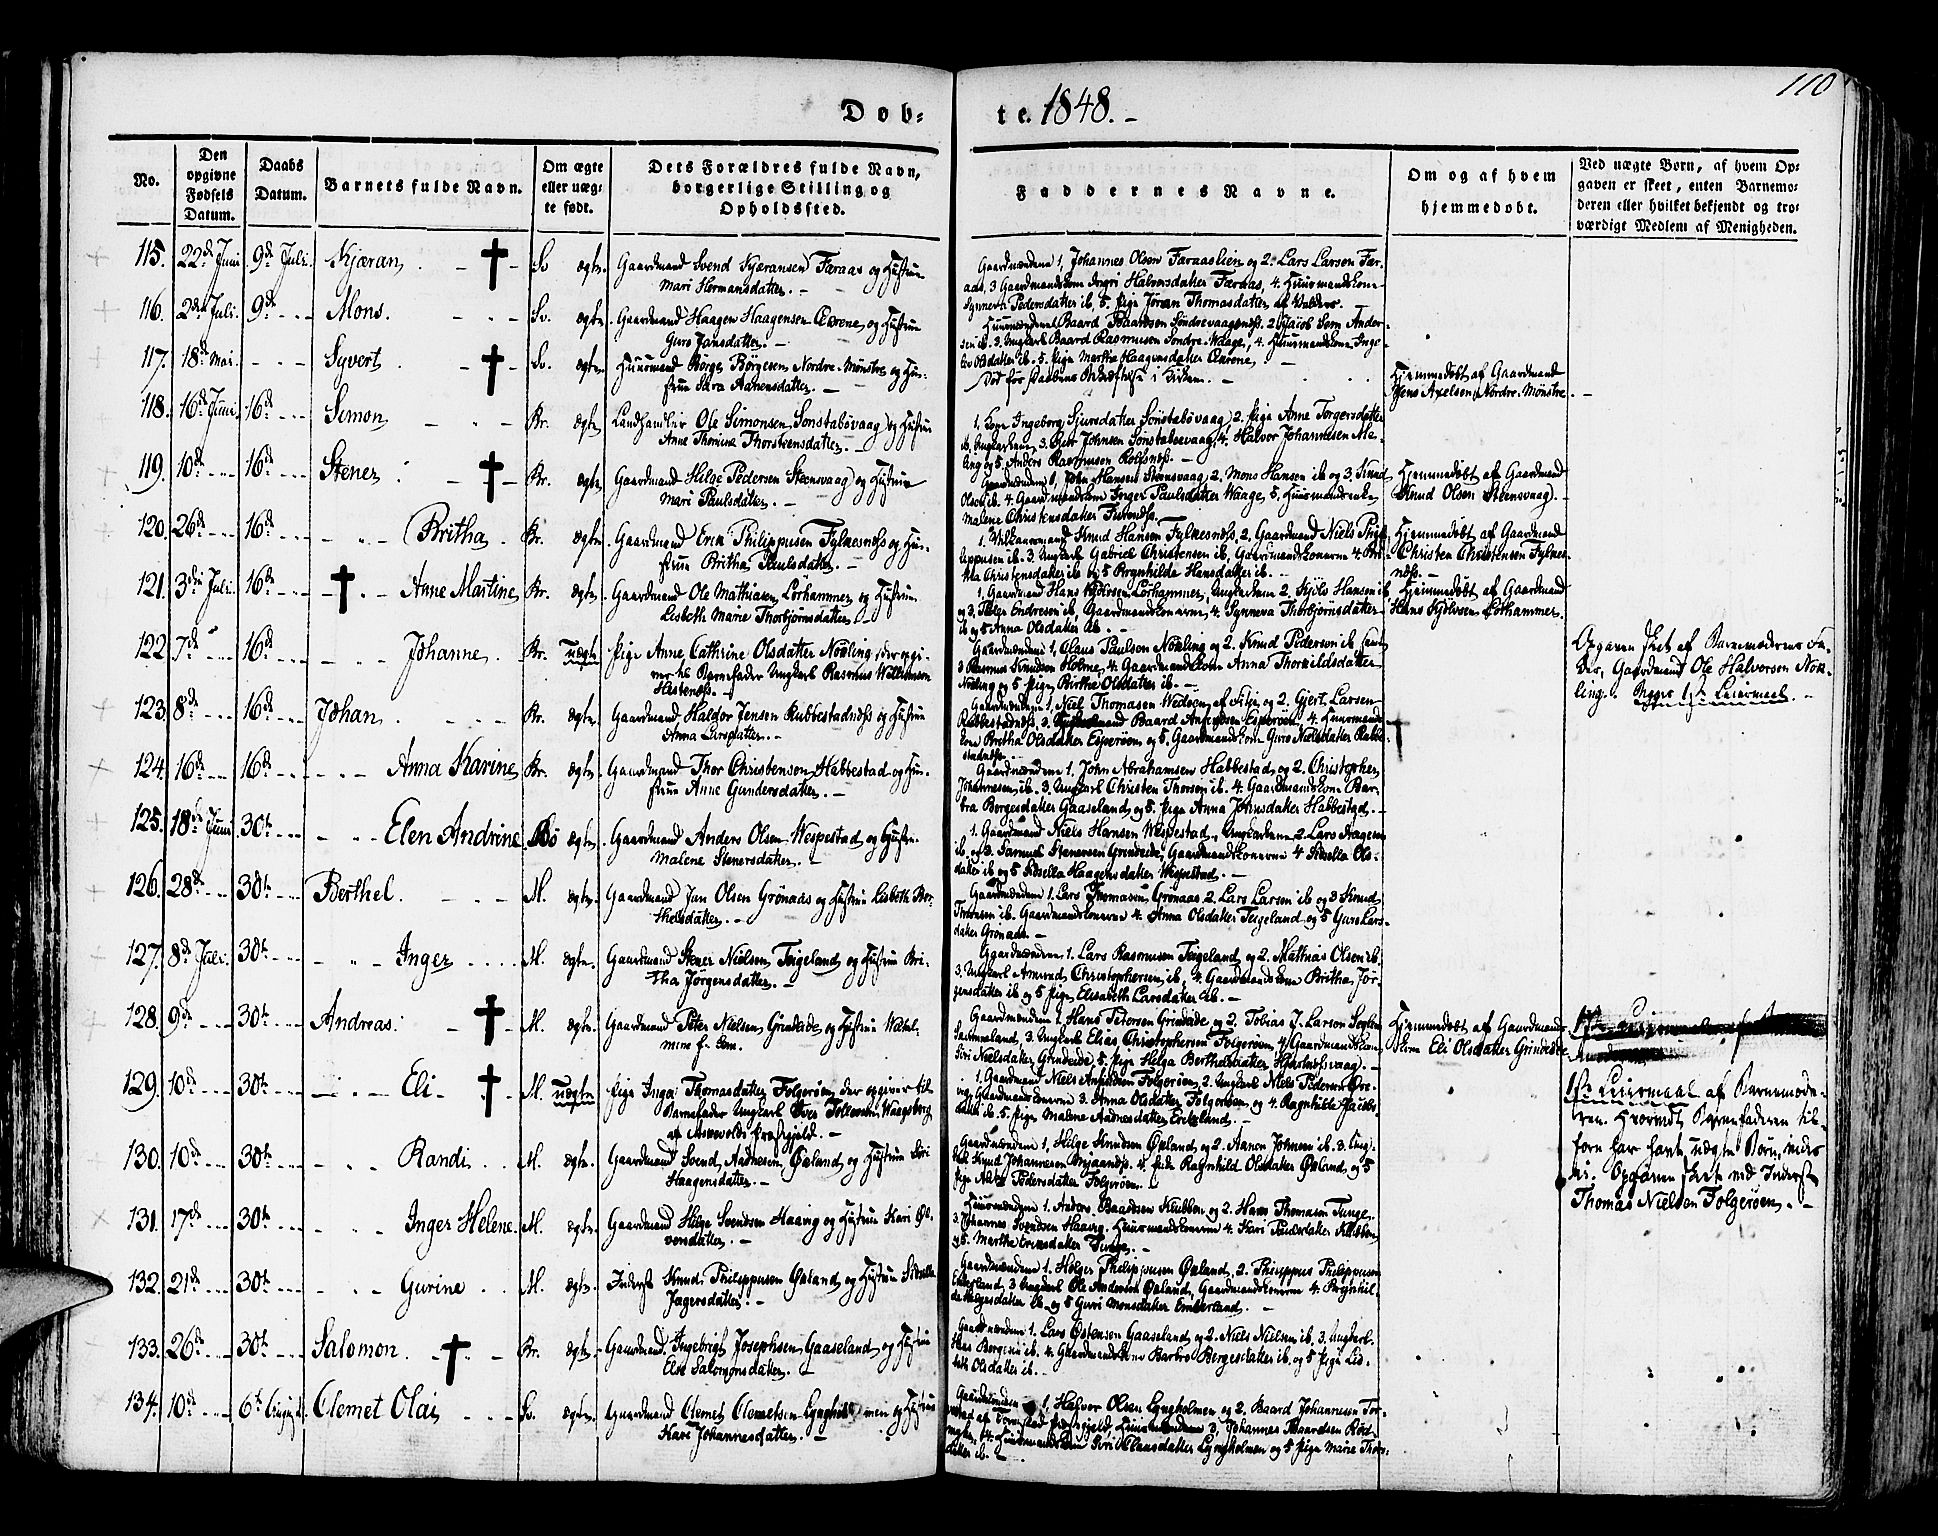 110
Døb- te. 1848. -
No.
Den opgivne Fødsels Datum.
Daabs Datum.
Barnets fulde Navn.
Om ægte eller uæg- te født.
Dets Forældres fulde Navn, borgerlige Stilling og Opholdssted.
Faddernes Navne.
Om og af hvem hjemmedøbt.
Ved uægte Børn, af hvem Op-
gaven er skeet, enten Barnemo-
deren eller hvilket bekjendt og tro-
værdigt Medlem af Menigheden.
115. 22de Juni. 9de Juli. Kjæran. Sv ægte. Gaardmand Svend Kjæransen Færaas og Hustrue
Mari Hermansdatter. -
Gaardmændene 1, Johannes Olsen Faraaslien og 2. Lars Larsen Fær-
aas, 3 Gaardmandskone Ingri Halvorsdatter Færaas, 4. Huusmandskone
Synneva Pedersdatter ib, 5. Pige Joran Thomasdatter af Valders. -
116. 2den Juli. 9de Mons. Sv. ægte. Gaardmand Haagen Haagensen Økrene og Hustrue
Guro Jansdatter. -
Huusmændene Baard Baardsen Søndrevaagenæs. 2 Jacob Sem Ander-
sen ib. 3. Ungkarl Baard Rasmusen Søndre-Waage, 4. Huusmandskone Inge-
bor Olsdatter ib. 5. Pige Martha Haagensdatter Økrene,
117. 18de Mai. Syvert Sv. ægte. Huusmand Børge Børgesen Nordre-Mønstre og Hu-
strue Sara Aanensdatter. -
Død før Daabens Bekræftelse i Kirken. -
Hjemmedøbt af Gaardmand
Jens Axelsen, Nordre-Mønstre. -
118. 16de Juni. 16de Simon Br. ægte Landhandler Ole Simonsen Sønstabøvaag og Hustrue
Anne Thomine Thorstensdatter. -
1. Kone Ingeborg Sjursdatter Sønstabøvaag, 2. Pige Anne Torgersdatter
ib, Ungkarlene 3. Peter Johnsen Sønstabøevaag, 4. Halvor Johannesen Ale-
ling og 5. Anders Rasmusen Rolfsnæs. -
119. 10de 16de Stener Br. ægte. Gaardmand Helge Pedersen Steensvaag og Hustrue
Mari Paulsdatter. -
Gaardmændene 1, John Hansen Steensvaag, 2. Mons Hansen ib og 3. Knud
Olsen ib. 4. Gaardmandskone Inger Paulsdatter Waage, 5. Huusmandsenke
Malene Christensdatter
Hjemmedøbt af Gaardmand
Knud Olsen Steensvaag. -
120. 26de 16de Britha. Br. ægte. Gaardmand Erik Philippusen Fylkesnæs og Hu-
strue Britha Paulsdatter. -
1. Knud Hansen Fylkesnæs, 2. Gaardmand Niels Phil-
ippusen ib. 3. Ungkarl Gabriel Christensen ib, Gaardmandskonerne 4. Bri-
tha Christensdatter ib og 5 Brynhilde Hansdatter ib. -
Hjemmedøbt af Gaardmand
Christen Christensen Fylkes-
næs. -
121. 3die Juli. 16de Anne Martine Br. ægte. Gaardmand Ole Mathiasen Lørhammer og Hustrue
Lisbeth Marie Thorbjørnsdatter. -
1. Gaardmand Hans Kjølvsen Lørhammer, Ungkarlene 2. Kjølv Hansen ib
og 3. Peter Endresen ib, Gaardmandskonerne, 4. Synneva Thorbjørnsdatter
ib og 5 Anna Olsdatter ib. -
Hjemmedøbt af Gaardmand
Hans Kjølvsen Lørhammer.
122. 7de 16de Johanne. Br. uægte Pige Anne Cathrine Olsdatter Nøkling, der opgi-
ver til Barnefader Ungkarl Rasmus Willumsen
Hestenæs. -
Gaardmændene 1, Claus Paulsen Nøkling og 2. Knud Pedersen ib samt
3 Rasmus Knudsen Holme, 4. Gaardmandskone Anna Thorkildsdatter
Nøkling og 5 Pige Birthe Olsdatter ib. -
Opgaven skeet af Barnemoderens Fa-
der, Gaardmand Ole Halversen Nøk-
ling. Begges 1ste Leiermaal. -
123. 8de 16de Johan. Br. ægte. Gaardmand Haldor Jensen Rubbestadnæs og Hustrue
Anna Larsdatter. -
Gaardmændene 1. Niel Thomasen Wedøen af Fitje og 2. Gjert Larsen
Rubbestadnæs, 3. Baard Anfindsen Esperøen, 4. Huusmands-
kone Britha Olsdatter Esperøen, og 5. Gaardmandskone Guro Nielsdatter Rubbe-
stadnæs. -
124. 16de 16de Anna Karine Br. ægte. Gaardmand Thor Christensen Habbestad og Hu-
strue Anne Gundersdatter. -
Gaardmændene 1. John Abrahamsen Habbestad og 2. Christopher
Johannesen ib. 3. Ungkarl Christen Thorsen ib. 4. Gaardmandskone Bar-
bra Børgesdatter Gaaseland og 5. Pige Anna Johnsdatter Habbestad. -
125. 18de Juni 30te Elen Andrine Bø ægte. Gaardmand Anders Olsen Wespestad og Hustrue
Malene Stenersdatter. -
1. Gaardmand Niels Hansen Wespestad, Ungkarlene 2. Lars Aagesen
ib, og 3. Samuel Stenersen Grindeide, Gaardmandskonerne 4 Sidsella Ols-
datter ib og 5 Sidsella Haagensdatter Wespestad. -
126. 28de 30te Berthel. M. ægte. Gaardmand Jan Olsen Grønaas og Hustrue Lisbeth Ber-
thelsdatter. -
Gaardmændene 1. Lars Thomasen Grønaas 2. Lars Larsen ib og 3 Knud
Thorsen ib. Gaardmandskonerne 4. Anna Olsdatter Teigeland og 5 Guro Lars-
datter Grønaas. -
127. 8de Juli. 30te Inger M. ægte. Gaardmand Stener Nielsen Teigeland og Hustrue Bri-
tha Jørgensdatter. -
Gaardmændene 1. Lars Rasmusen Teigeland og 2. Mathias Olsen ib.
3. Ungkarl Amund Christophersen ib, 4. Gaardmandskone Britha Jør-
gensdatter ib og 5 Pige Elisabeth Larsdatter ib. -
128. 9de 30te Andreas. M. ægte. Gaardmand Peter Nielsen Grindeide og Hustrue Wilhel-
mine f. Sem.
Gaardmændene 1. Hans Petersen Grindeide og 2. Tobias J. Larsen
3. Ungkarl Elias Christophersen Folgerøen, 4. Gaardmandskone
Siri Nielsdatter Grindeide, 5. Pige Helga Berthelsdatter -
Hjemmedøbt af Gaardmands-
kone Eli Olsdatter Grindeide
129. 10de 30te Eli M. uægte Pige Inga Thomasdatter Folgerøen, der opgiver til
Barnefader Ungkarl Iver Tollevsen Waagsberg
af Præstegjeld. -
1. Gaardmand Niels Anfindsen Folgerøen, 2. Ungkarl Niels Pedersen Øre-
vig, Gaardmandskonerne 3. Anna Olsdatter Folgerøen, og 4. Ragnhilde Jacobs-
datter ib. 5. Pige Malene Aadnesdatter -
1ste Leiermaal af Barnemode-
ren. Hvorvidt Barnefaderen til-
forn har havt uægte Børn, vides
ei. Opgaven skeet ved Inderst
Thomas Nielsen Folgerøen. -
130. 10de 30te Randi M. ægte. Gaardmand Svend Aadnesen Økland og Hustrue Siri
Haagensdatter. -
Gaardmændene 1, Helge Knudsen Økland og 2. Aanon Johnsen ib. 3. Ung-
karl Knud Johannesen 4. Pige Ragnhild Olsdatter Økland, og 5
Pige Pedersdatter Folgerøen. -
131. 17de 30te Inger Helene. M. ægte. Gaardmand Helge Svendsen Haavig og Hustrue Kari Øi-
vensdatter. -
Huusmændene 1. Anders Baardsen Klubben og 2. Hans Thomasen Tunge,
3. Johannes Svendsen Haavig. Huusmandskonerne 4. Kari Pedersdatter Klubben
og 5. Martha Eriksdatter Tunge. -
132. 21de 30te Gurine M. ægte. Inderst Knud Philippusen Økland og Hustrue Sidselle
Jagersdatter. -
Gaardmændene 1. Holger Philippusen Økland, 2. Philippus Philippusen
Emberland, 3 Ungkarl Ole Andersen Økland, Gaardmandskonerne 4. Brynhil-
de Helgesdatter ib og 5 Guri Monsdatter Emberland. -
133. 26de 30te Salomon. Br. ægte. Gaardmand Ingebrigt Josephsen Gaaseland og Hustrue
Else Salomonsdatter. -
Gaardmændene 1. Lars Østensen Gaaseland og 2. Niels Nielsen ib, 3. Ungkarl
Børgesen ib. 4. Gaardmandskone Barbro Børgesdatter ib, og 5 Pige Lis-
beth Olsdatter ib. -
134. 10de 6te August. Clemet Olai Sv. ægte. Gaardmand Clemet Clemetsen Lyngholmen og Hustrue
Kari Johannesdatter. -
Gaardmændene 1. Halvor Olsen Lyngholmen og 2. Baard Johannesen Tor-
Præstegjeld, Huusmændene 3, Johannes Baardsen
4. Huusmandskone Siri Clausdatter Lyngholmen og 5 Pige Marie Thors-
datter ib. -